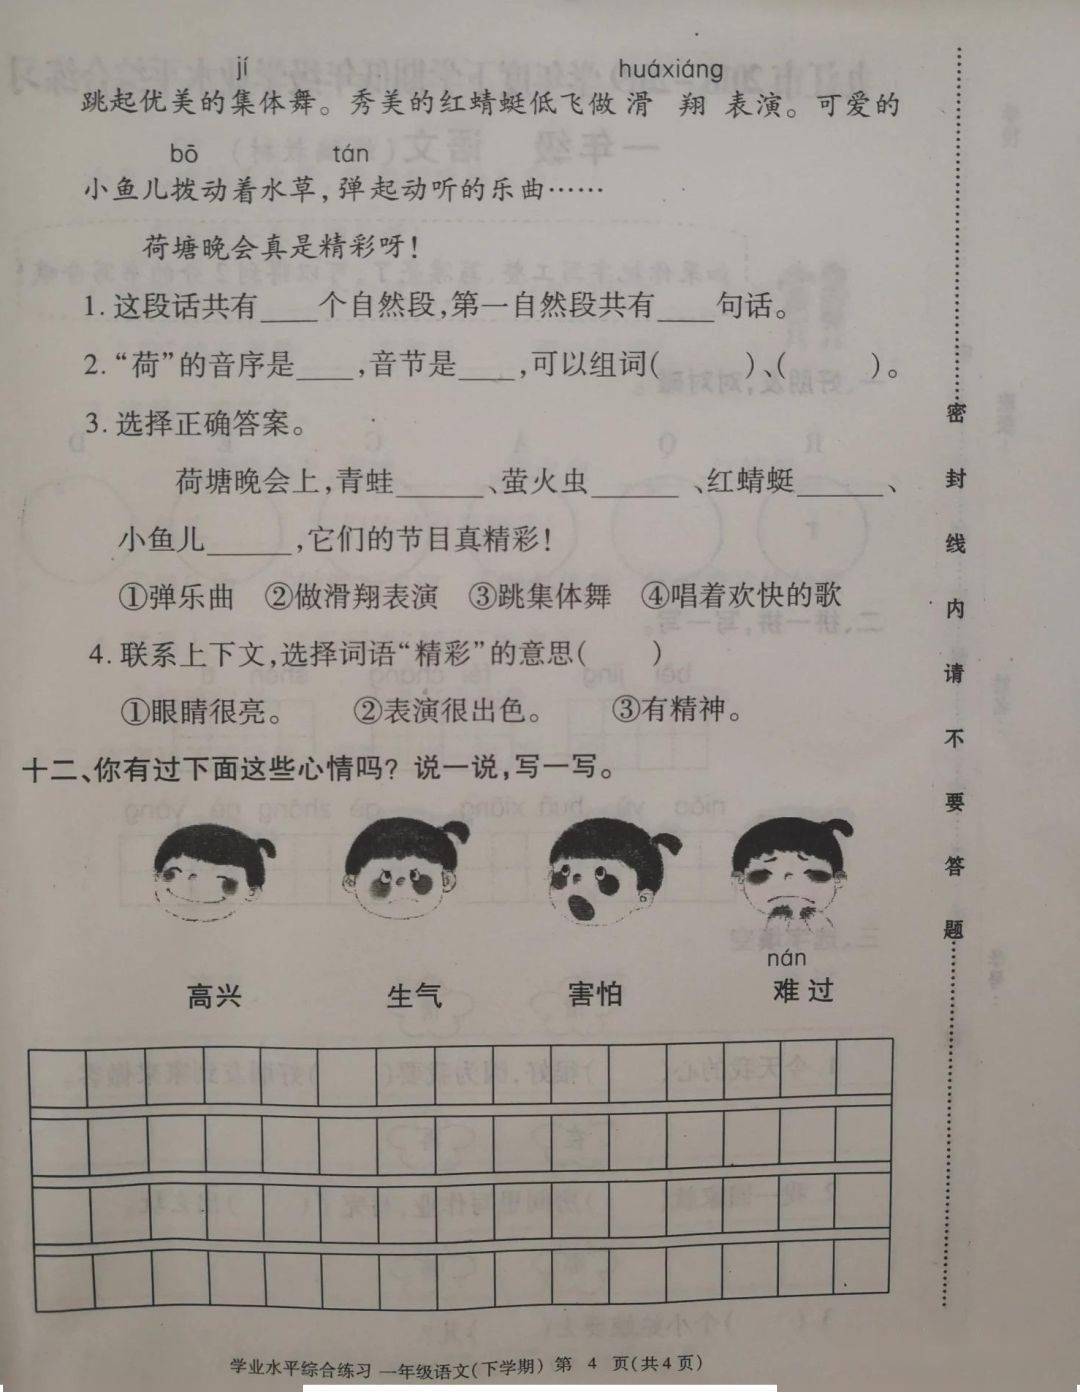 jí huáxiáng
跳起优美的集体舞。秀美的红蜻蜓低飞做滑翔表演。可爱的
bō tán
小鱼儿拨动着水草,弹起动听的乐曲……
荷塘晚会真是精彩呀!
1. 这段话共有____个自然段,第一自然段共有____句话。
2. “荷”的音序是____,音节是____,可以组词( )、( )。
3. 选择正确答案。
荷塘晚会上,青蛙______、萤火虫______、红蜻蜓______、
小鱼儿______,它们的节目真精彩!
①弹乐曲 ②做滑翔表演 ③跳集体舞 ④唱着欢快的歌
4. 联系上下文,选择词语“精彩”的意思( )
①眼睛很亮。 ②表演很出色。 ③有精神。
十二、你有过下面这些心情吗? 说一说,写一写。
nán
高兴 生气 害怕 难过
学业水平综合练习 一年级语文(下学期) 第 4 页(共4页)
密封线内请不要答题